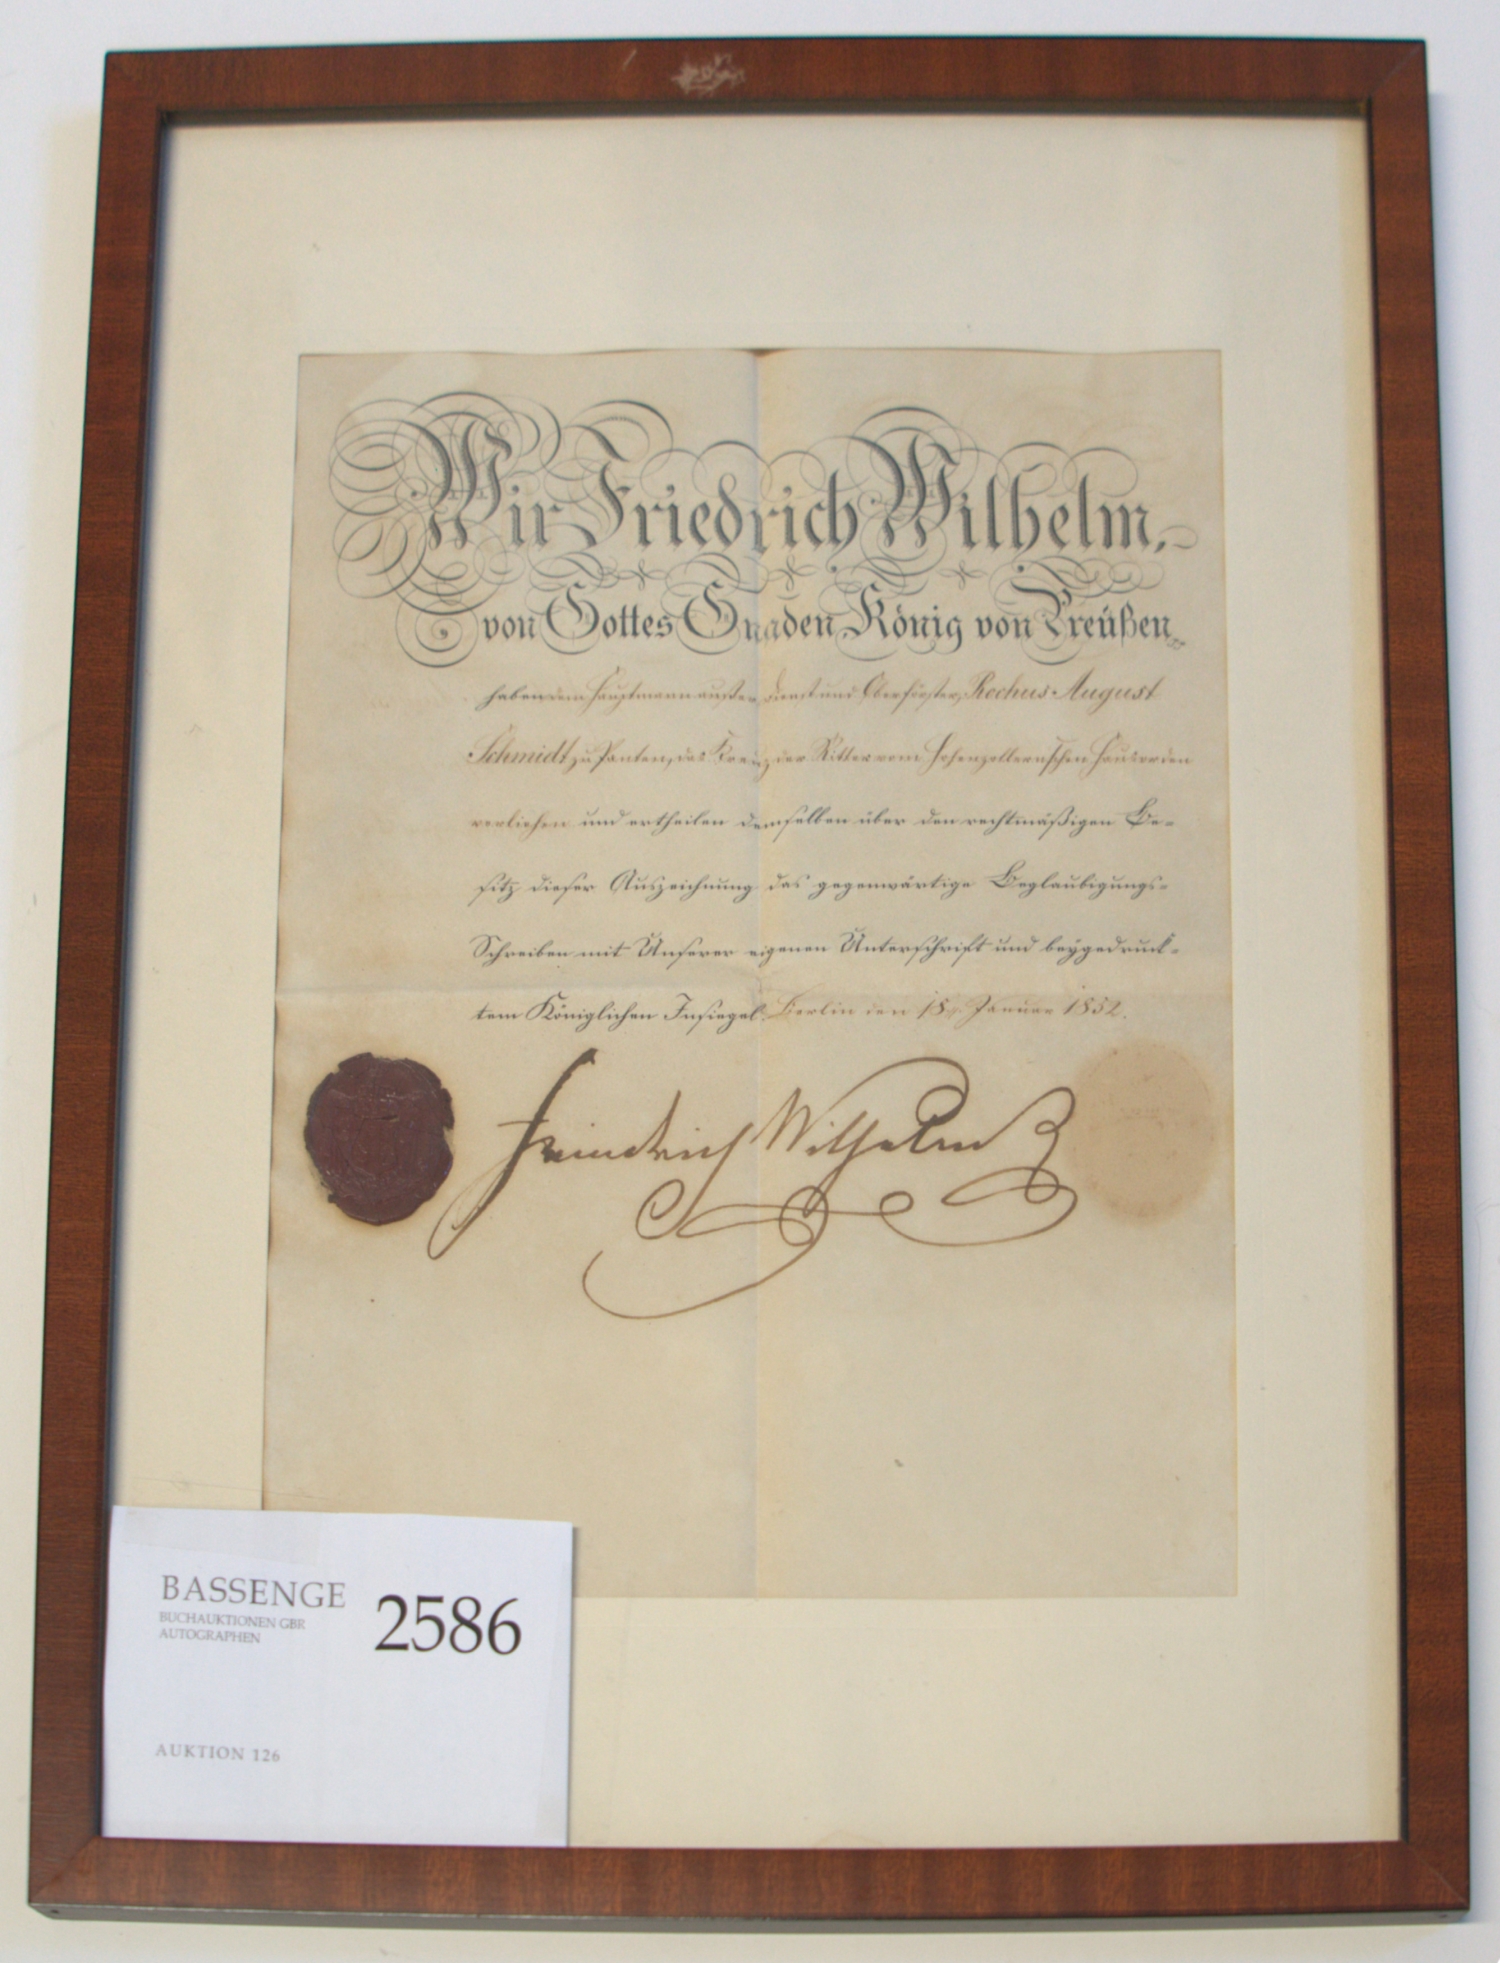 Wir Friedrich Wilhelm,
von Gottes Gnaden König von Preußen
haben dem Hauptmann außer Dienst und Oberförster, Rochus August
Schmidt zu Panten, das Kreuz der Ritter vom Hohenzollernschen Hausorden
verliehen und ertheilen demselben über den rechtmäßigen Be-
sitz dieser Auszeichnung das gegenwärtige Beglaubigungs-
Schreiben mit Unserer eigenen Unterschrift und beygedruck-
tem Königlichen Insiegel. Berlin den 18. Januar 1852.
Friedrich Wilhelm
BASSENGE
BUCHAUKTIONEN GBR
AUTOGRAPHEN
2586
AUKTION 126